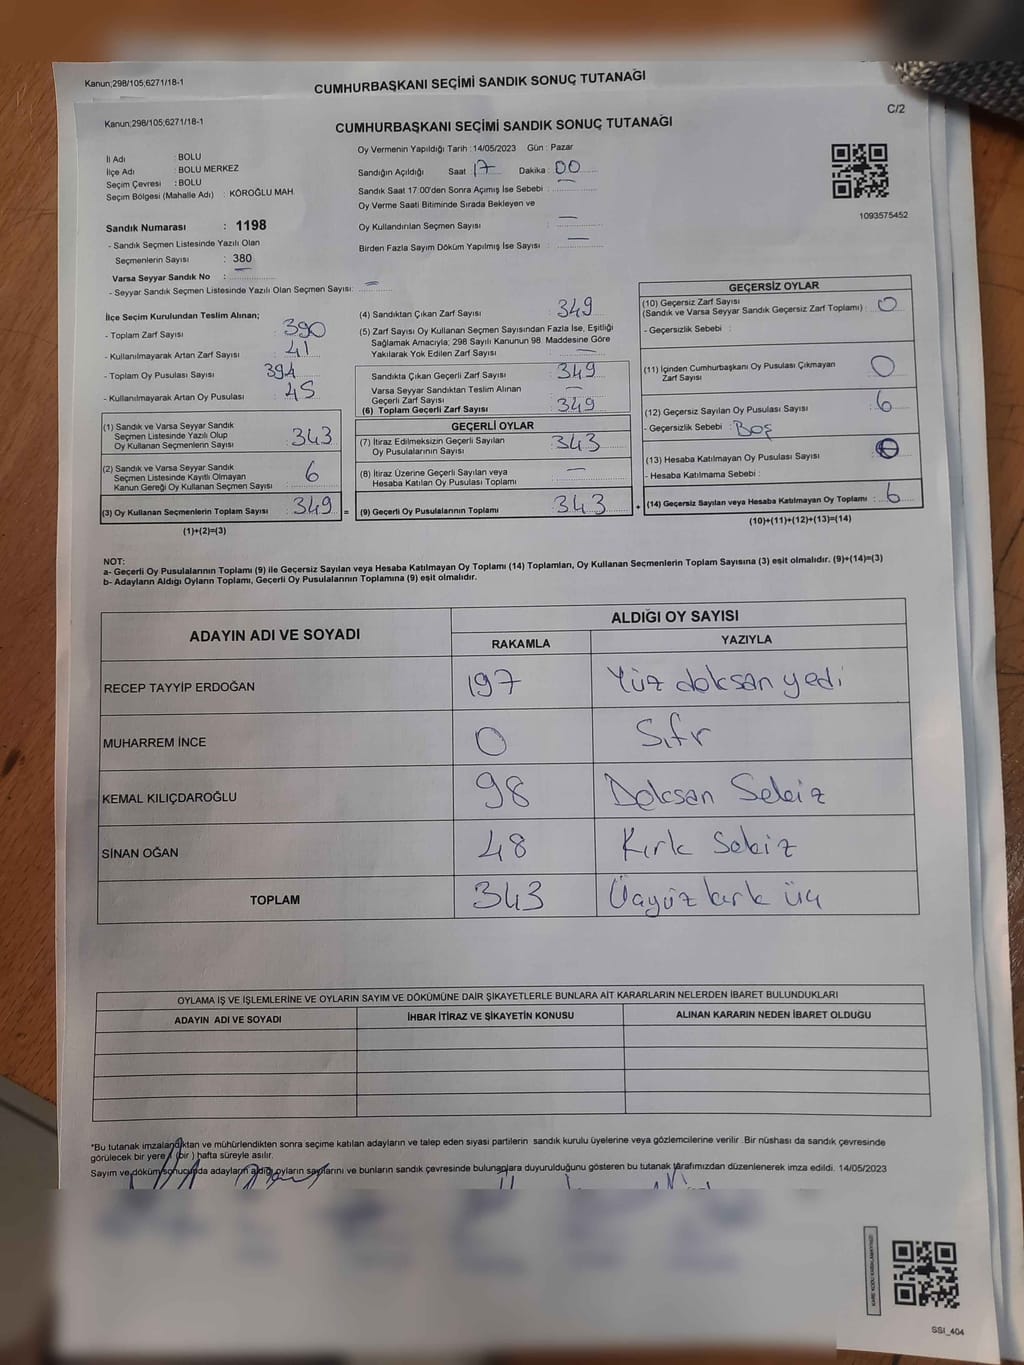 Kanun;298/105;6271/18-1
CUMHURBAŞKANI SEÇİMİ SANDIK SONUÇ TUTANAĞI
C/2
Kanun;298/105;6271/18-1
CUMHURBAŞKANI SEÇİMİ SANDIK SONUÇ TUTANAĞI
İl Adı : BOLU
İlçe Adı : BOLU MERKEZ
Seçim Çevresi : BOLU
Seçim Bölgesi (Mahalle Adı) : KÖROĞLU MAH.
Sandık Numarası : 1198
- Sandık Seçmen Listesinde Yazılı Olan
Seçmenlerin Sayısı : 380
Varsa Seyyar Sandık No :
- Seyyar Sandık Seçmen Listesinde Yazılı Olan Seçmen Sayısı: —
Oy Vermenin Yapıldığı Tarih : 14/05/2023 Gün : Pazar
Sandığın Açıldığı Saat : 17 Dakika : 00
Sandık Saat 17:00'den Sonra Açımış İse Sebebi : —
Oy Verme Saati Bitiminde Sırada Bekleyen ve
Oy Kullandırılan Seçmen Sayısı : —
Birden Fazla Sayım Döküm Yapılmış İse Sayısı : —
1093575452
İlçe Seçim Kurulundan Teslim Alınan;
- Toplam Zarf Sayısı : 390
- Kullanılmayarak Artan Zarf Sayısı : 41
- Toplam Oy Pusulası Sayısı : 394
- Kullanılmayarak Artan Oy Pusulası : 45
(1) Sandık ve Varsa Seyyar Sandık
Seçmen Listesinde Yazılı Olup
Oy Kullanan Seçmenlerin Sayısı : 343
(2) Sandık ve Varsa Seyyar Sandık
Seçmen Listesinde Kayıtlı Olmayan
Kanun Gereği Oy Kullanan Seçmen Sayısı : 6
(3) Oy Kullanan Seçmenlerin Toplam Sayısı : 349 =
(1)+(2)=(3)
(4) Sandıktan Çıkan Zarf Sayısı : 349
(5) Zarf Sayısı Oy Kullanan Seçmen Sayısından Fazla İse, Eşitliği
Sağlamak Amacıyla; 298 Sayılı Kanunun 98. Maddesine Göre
Yakılarak Yok Edilen Zarf Sayısı : —
Sandıkta Çıkan Geçerli Zarf Sayısı : 349
Varsa Seyyar Sandıktan Teslim Alınan
Geçerli Zarf Sayısı : —
(6) Toplam Geçerli Zarf Sayısı : 349
GEÇERLİ OYLAR
(7) İtiraz Edilmeksizin Geçerli Sayılan
Oy Pusulalarının Sayısı : 343
(8) İtiraz Üzerine Geçerli Sayılan veya
Hesaba Katılan Oy Pusulası Toplamı : —
(9) Geçerli Oy Pusulalarının Toplamı : 343 +
GEÇERSİZ OYLAR
(10) Geçersiz Zarf Sayısı
(Sandık ve Varsa Seyyar Sandık Geçersiz Zarf Toplamı) : 0
- Geçersizlik Sebebi :
(11) İçinden Cumhurbaşkanı Oy Pusulası Çıkmayan
Zarf Sayısı : 0
(12) Geçersiz Sayılan Oy Pusulası Sayısı : 6
- Geçersizlik Sebebi : Boş
(13) Hesaba Katılmayan Oy Pusulası Sayısı : 0
- Hesaba Katılmama Sebebi :
(14) Geçersiz Sayılan veya Hesaba Katılmayan Oy Toplamı : 6
(10)+(11)+(12)+(13)=(14)
NOT:
a- Geçerli Oy Pusulalarının Toplamı (9) ile Geçersiz Sayılan veya Hesaba Katılmayan Oy Toplamı (14) Toplamları, Oy Kullanan Seçmenlerin Toplam Sayısına (3) eşit olmalıdır. (9)+(14)=(3)
b- Adayların Aldığı Oyların Toplamı, Geçerli Oy Pusulalarının Toplamına (9) eşit olmalıdır.
ADAYIN ADI VE SOYADI ALDIĞI OY SAYISI
RAKAMLA YAZIYLA
RECEP TAYYİP ERDOĞAN 197 Yüz doksan yedi
MUHARREM İNCE 0 Sıfır
KEMAL KILIÇDAROĞLU 98 Doksan Sekiz
SİNAN OĞAN 48 Kırk Sekiz
TOPLAM 343 Üçyüz kırk üç
OYLAMA İŞ VE İŞLEMLERİNE VE OYLARIN SAYIM VE DÖKÜMÜNE DAİR ŞİKAYETLERLE BUNLARA AİT KARARLARIN NELERDEN İBARET BULUNDUKLARI
ADAYIN ADI VE SOYADI İHBAR İTİRAZ VE ŞİKAYETİN KONUSU ALINAN KARARIN NEDEN İBARET OLDUĞU
*Bu tutanak imzalandıktan ve mühürlendikten sonra seçime katılan adayların ve talep eden siyasi partilerin sandık kurulu üyelerine veya gözlemcilerine verilir .Bir nüshası da sandık çevresinde
görülecek bir yere 1 (bir ) hafta süreyle asılır.
Sayım ve döküm sonucunda adayların aldığı oyların sayılarını ve bunların sandık çevresinde bulunanlara duyurulduğunu gösteren bu tutanak tarafımızdan düzenlenerek imza edildi. 14/05/2023
SSI_404